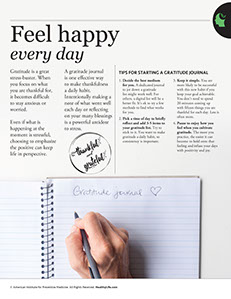 Feel happy
every day
Gratitude is a great
stress buster. When
you focus on what
you are thankful for,
it becomes difficult
to stay anxious or
worried.
Even if what is
happening at the
moment is stressful,
choosing to emphasize
the positive can keep
life in perspective.
A gratitude journal
is one effective way
to make thankfulness
a daily habit.
Intentionally making a
note of what went well
each day or reflecting
on your many blessings
is a powerful antidote
to stress.
thankful
grateful
TIPS FOR STARTING A GRATITUDE JOURNAL
1. Decide the best medium
for you. A dedicated journal
to jot down a gratitude
list might work well. For
others, a digital list will be a
better fit. It's ok to try a few
methods to find what works
for you.
2. Pick a time of day to briefly
reflect and add 3-5 items to
your gratitude list. Try to
stick to it. You want to make
gratitude a daily habit, so
consistency is important.
3. Keep it simple. You are
more likely to be successful
with this new habit if you
keep your goal achievable.
You don't need to spend
20 minutes coming up
with fifteen things you are
thankful for each day. Less is
often more.
4. Pause to enjoy how you
feel when you cultivate
gratitude. The more you
practice, the easier it can
become to hold onto that
feeling and infuse your days
with positivity and joy.
Gratitude journal
© American Institute for Preventive Medicine. All Rights Reserved. HealthyLife.com